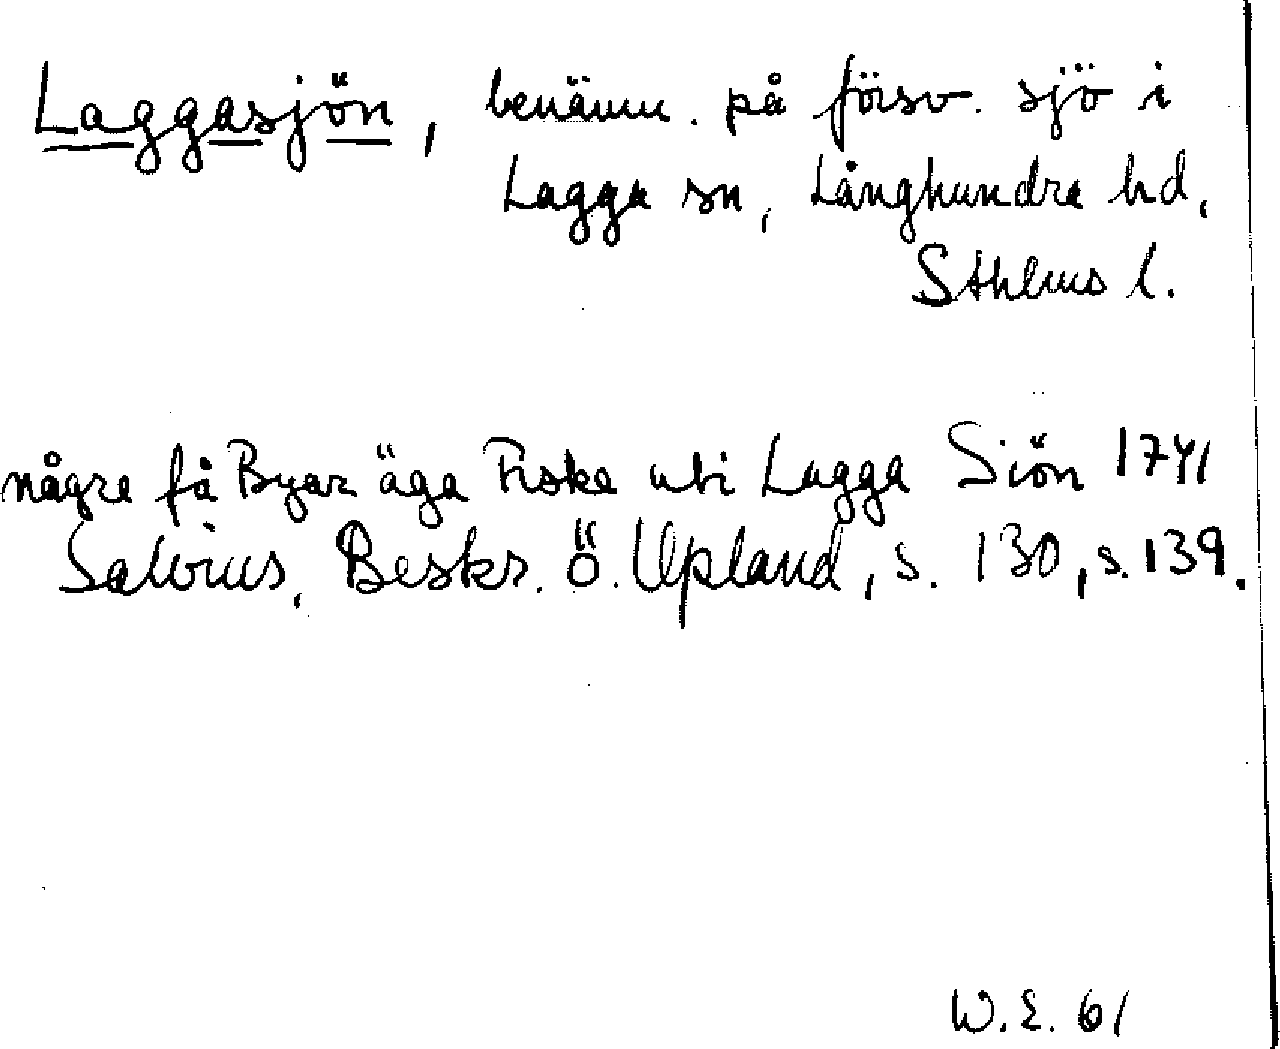 Laggasjön, benämn. på försv. sjö i
Lagga sn, Långhundra hd,
Sthlms l.
några få Byar äga Fiske uti Lagga Siön 1741
Salvius, Beskr. ö. Upland, s. 130, s. 139.
W.E. 61